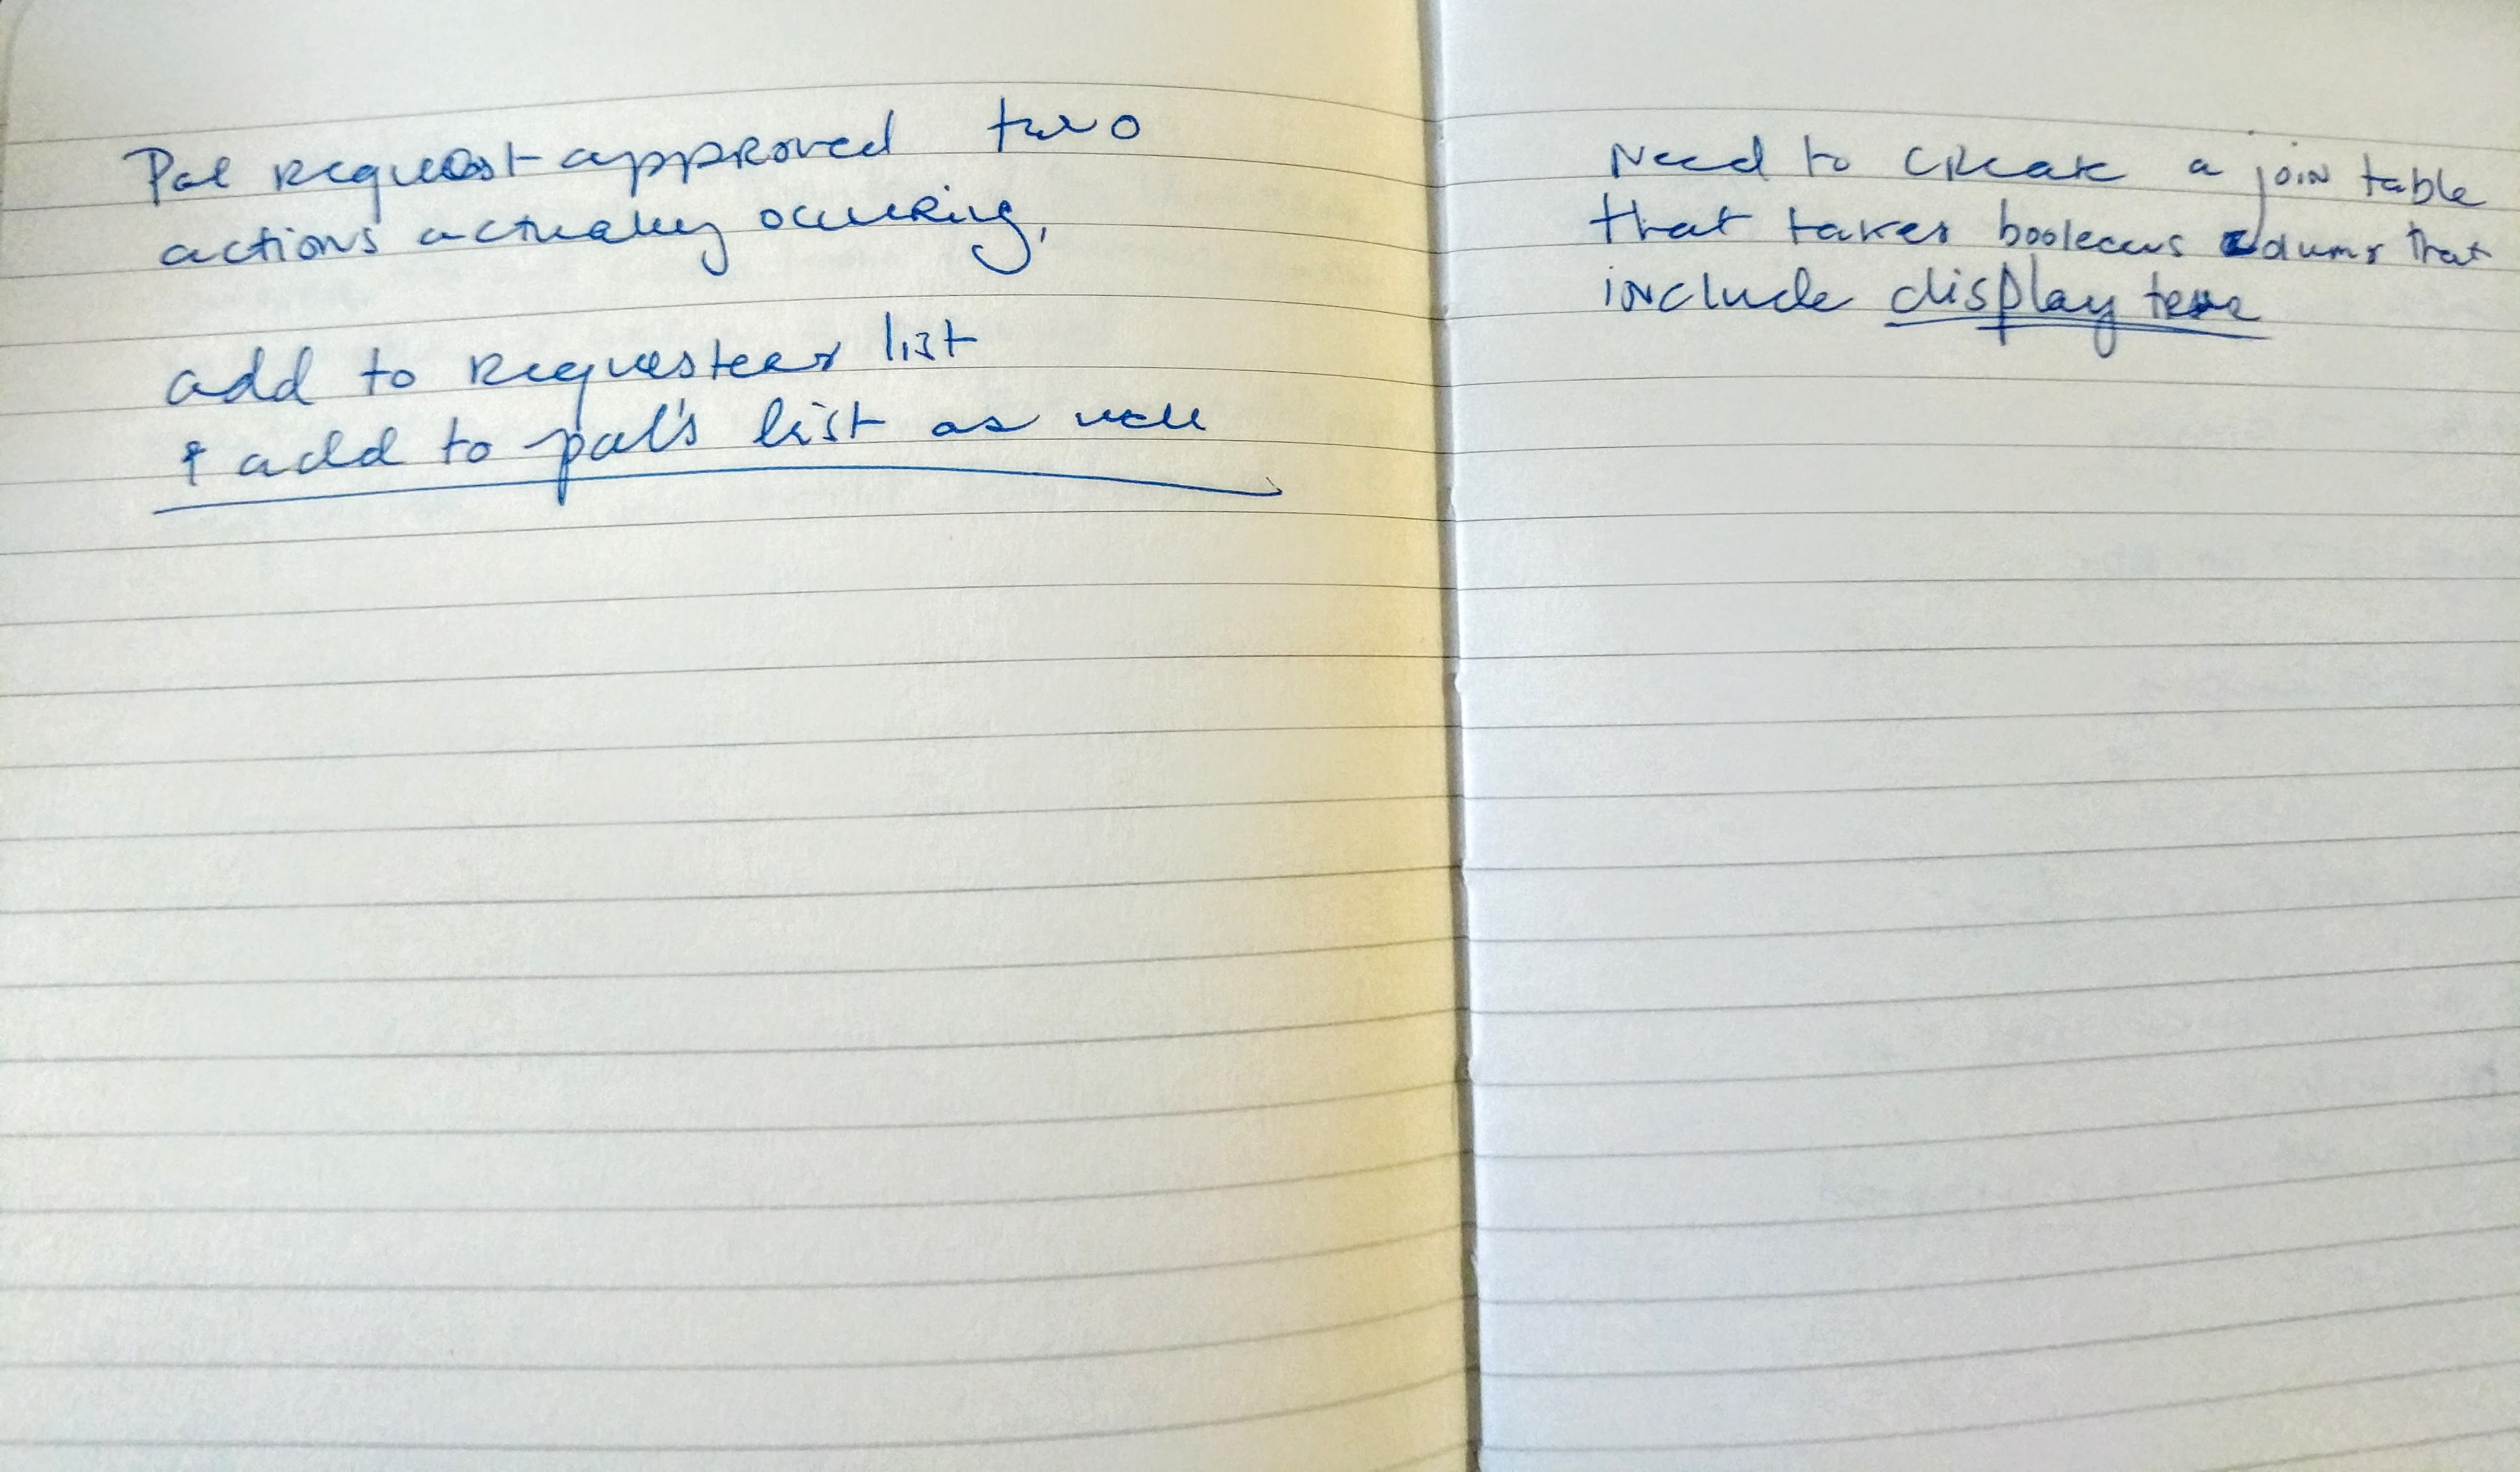 Pal request approved two
actions actually occuring,
add to requesters list
& add to pal's list as well
Need to create a join table
that takes booleans that
include display